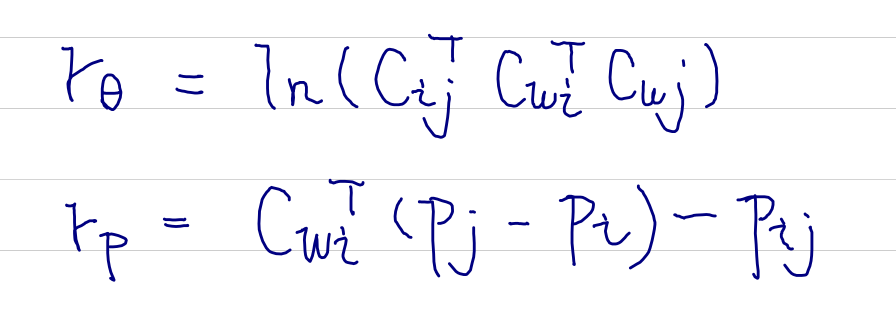 r_θ = ln(C_ij^T C_wi^T C_wj)
r_p = C_wi^T (p_j - p_i) - p_ij